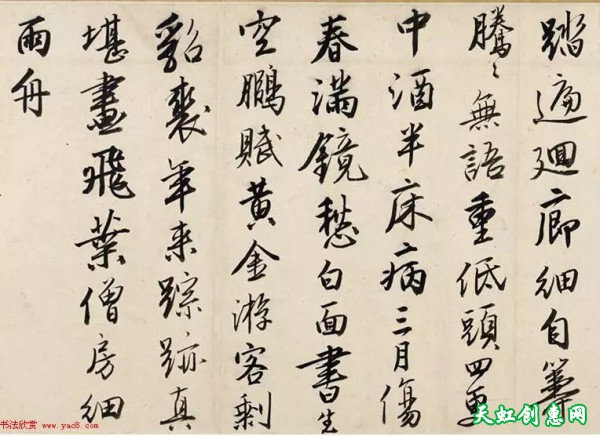 踏遍迴廊細自籌
騰〻無語重低頭四更
中酒半床病三月傷
春滿鏡愁白面書生
空鵩賦黃金游客剩
貂裘年来踪跡真
堪畫飛葉僧房細
雨舟
书法欣赏 www.yac8.com
天虹创意网